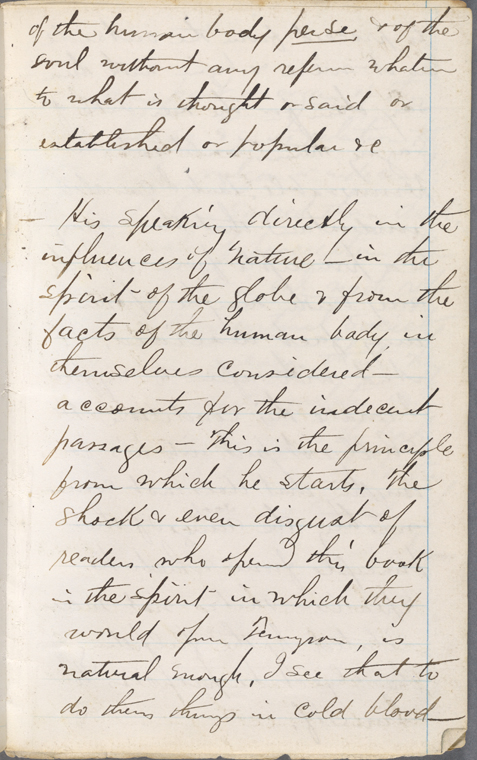 of the human body per se, & of the
soul without any reference whatever
to what is thought or said or
established or popular &c
His speaking directly in the
influences of Nature — in the
spirit of the globe & from the
facts of the human body, in
themselves considered —
accounts for the indecent
passages — This is the principle
from which he starts, the
shock & even disgust of
readers who open this book
in the spirit in which they
would open Tennyson, is
natural enough. I see that to
do these things in cold blood —